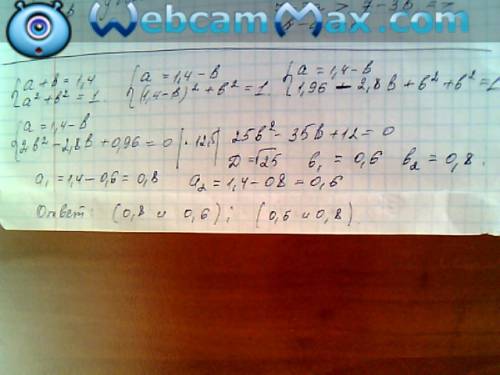 WebcamMax.com
7 - 3b =>
{a + b = 1,4 {a = 1,4 - b {a = 1,4 - b
a² + b² = 1. (1,4 - b)² + b² = 1. 1,96 - 2,8b + b² + b² = 1
{a = 1,4 - b
2b² - 2,8b + 0,96 = 0 | · 12,5 | 25b² - 35b + 12 = 0
D = √25 b₁ = 0,6 b₂ = 0,8.
a₁ = 1,4 - 0,6 = 0,8 a₂ = 1,4 - 08 = 0,6
Ответ: (0,8 и 0,6); (0,6 и 0,8).